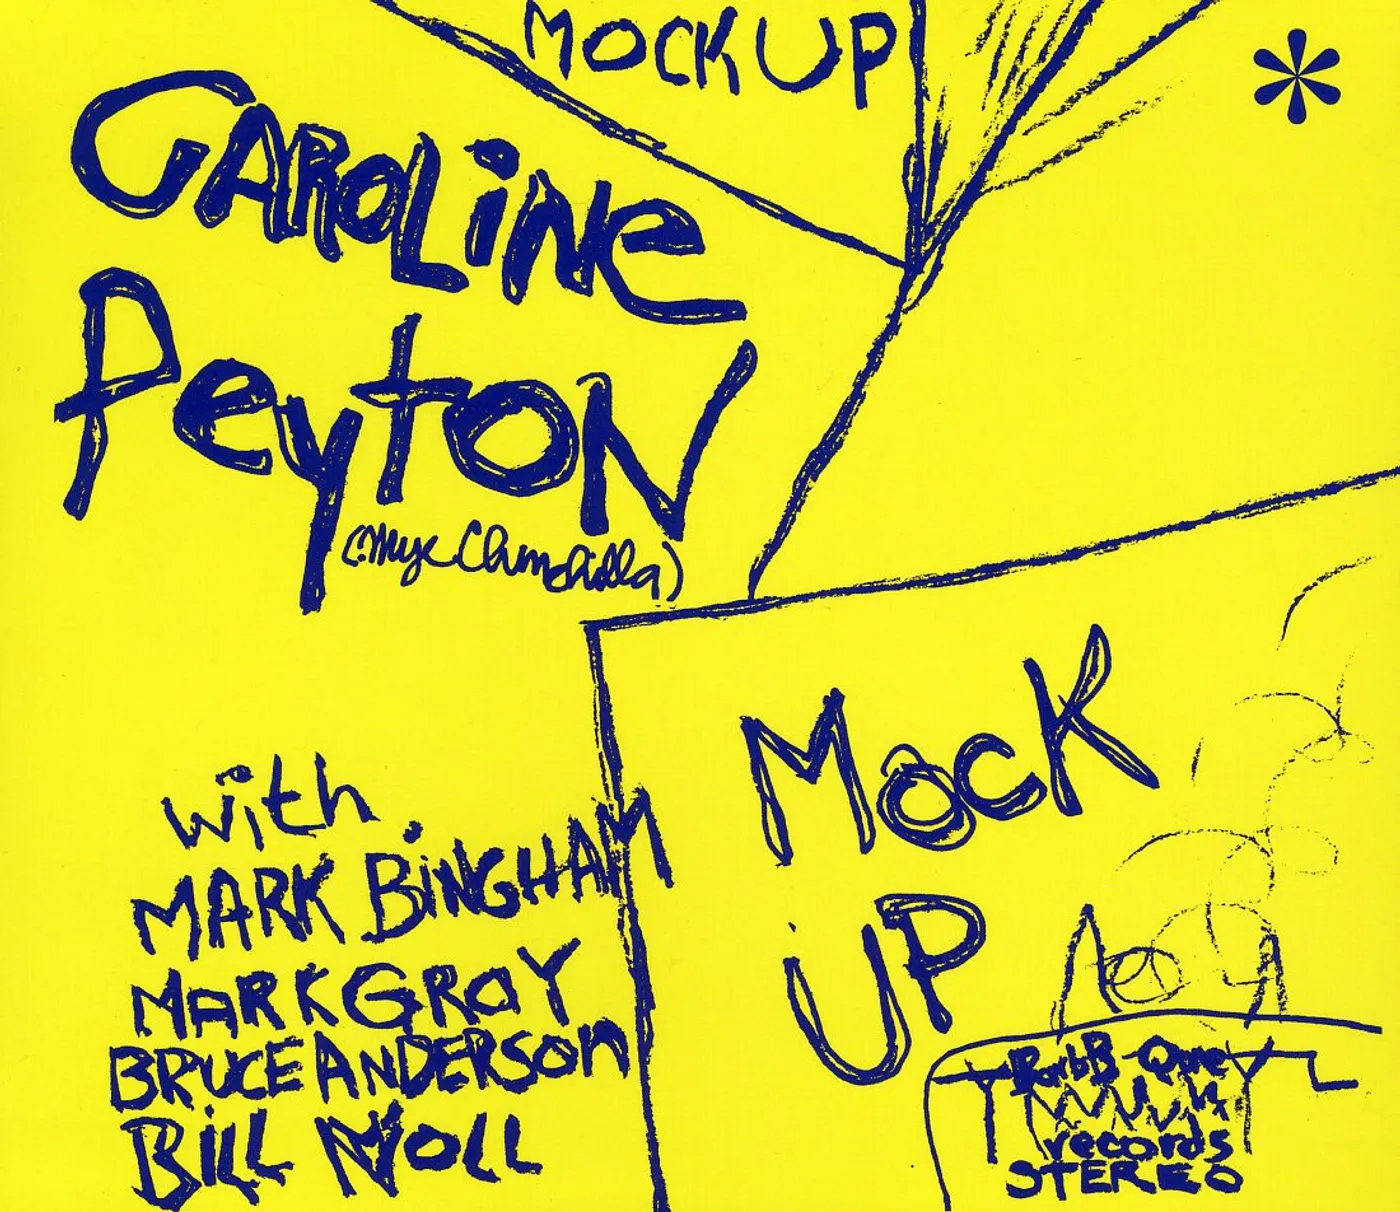 MOCK UP
CAROLiNe
PeytoN
(Myx Chinchilla)
with
MARK BiNGHAM
MARK GRAY
BRUCE ANDERSOn
BiLL NOLL
MocK
UP
BarbB Que
records
STEREO